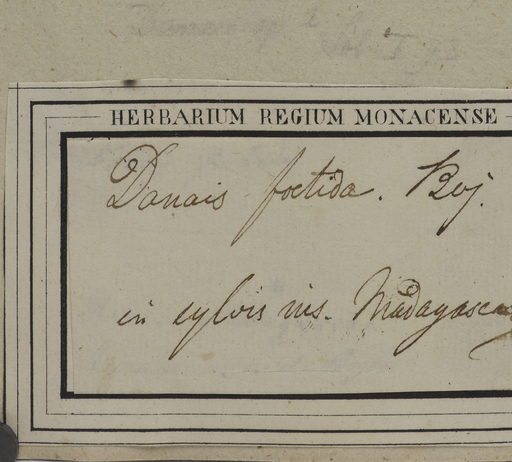 HERBARIUM REGIUM MONACENSE
Danais foetida. Boj.
in sylvis ins. Madagascar